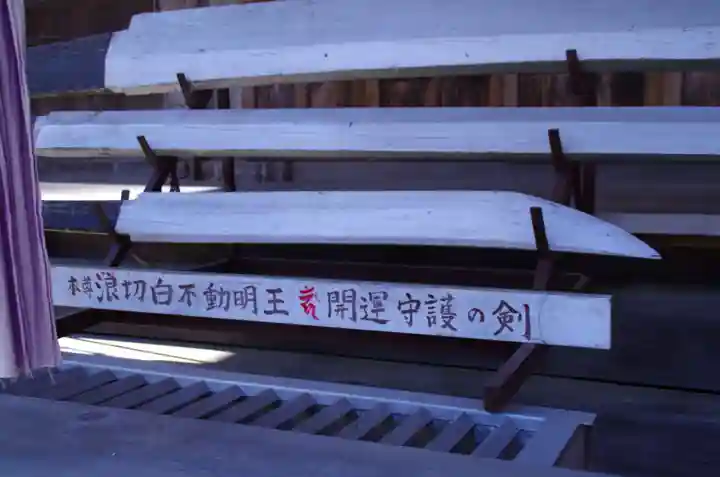 本尊 浪切白不動明王 開運守護の剣